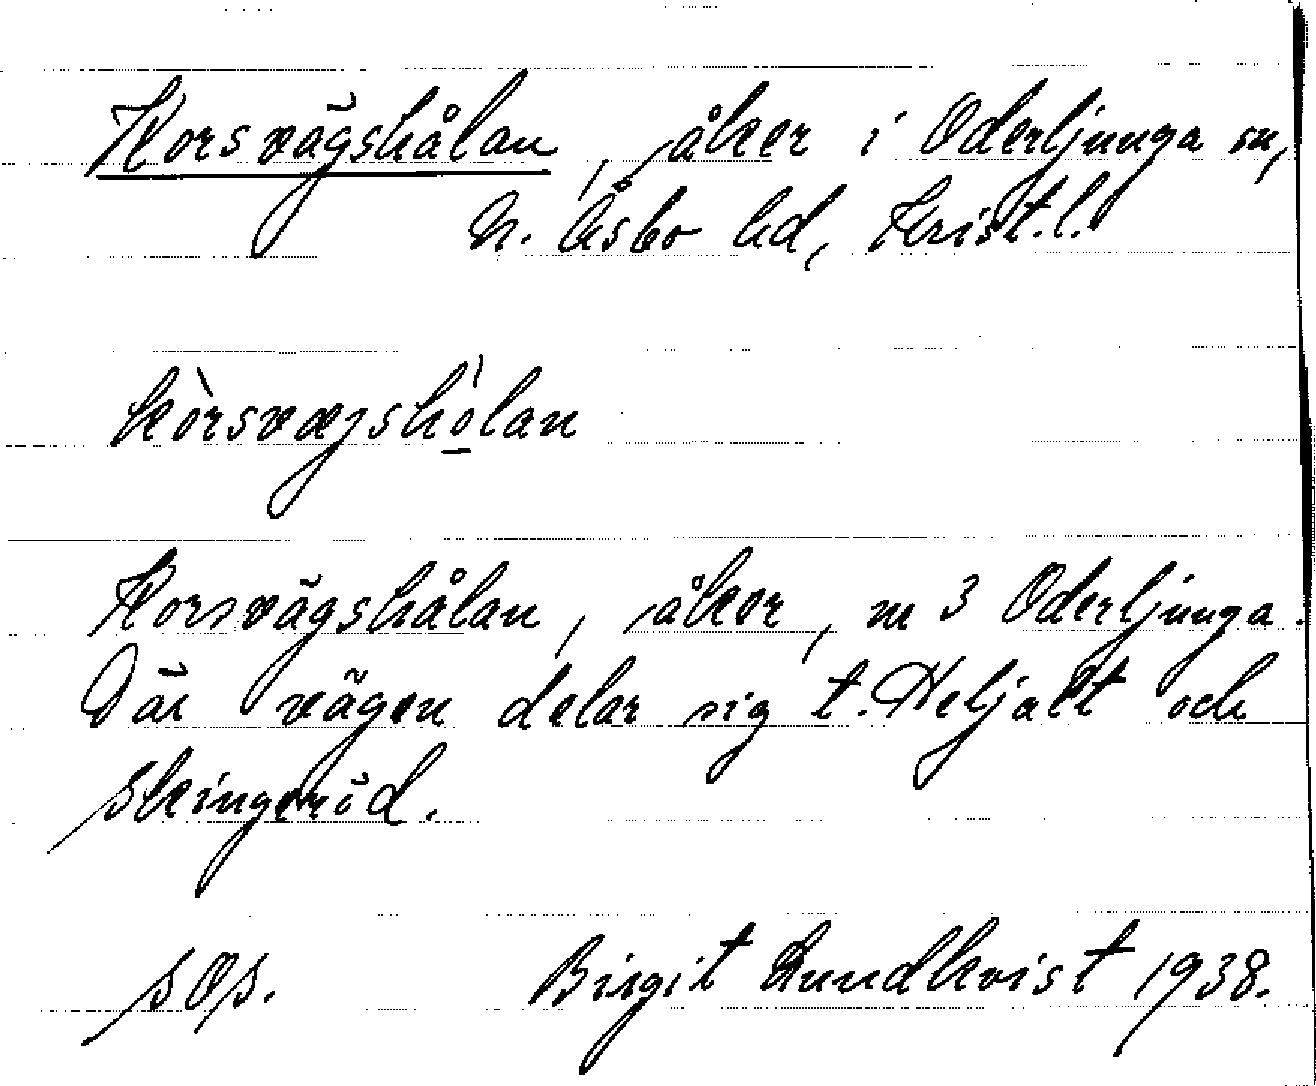 Korsvägshålan, åker i Oderljunga sn,
N. Åsbo hd, Krist. l.
kòrsvæjshó̱lan
Korsvägshålan, åker, m 3 Oderljunga.
Där vägen delar sig t. Heljalt och
Skingeröd.
sOs. Birgit Lundkvist 1938.